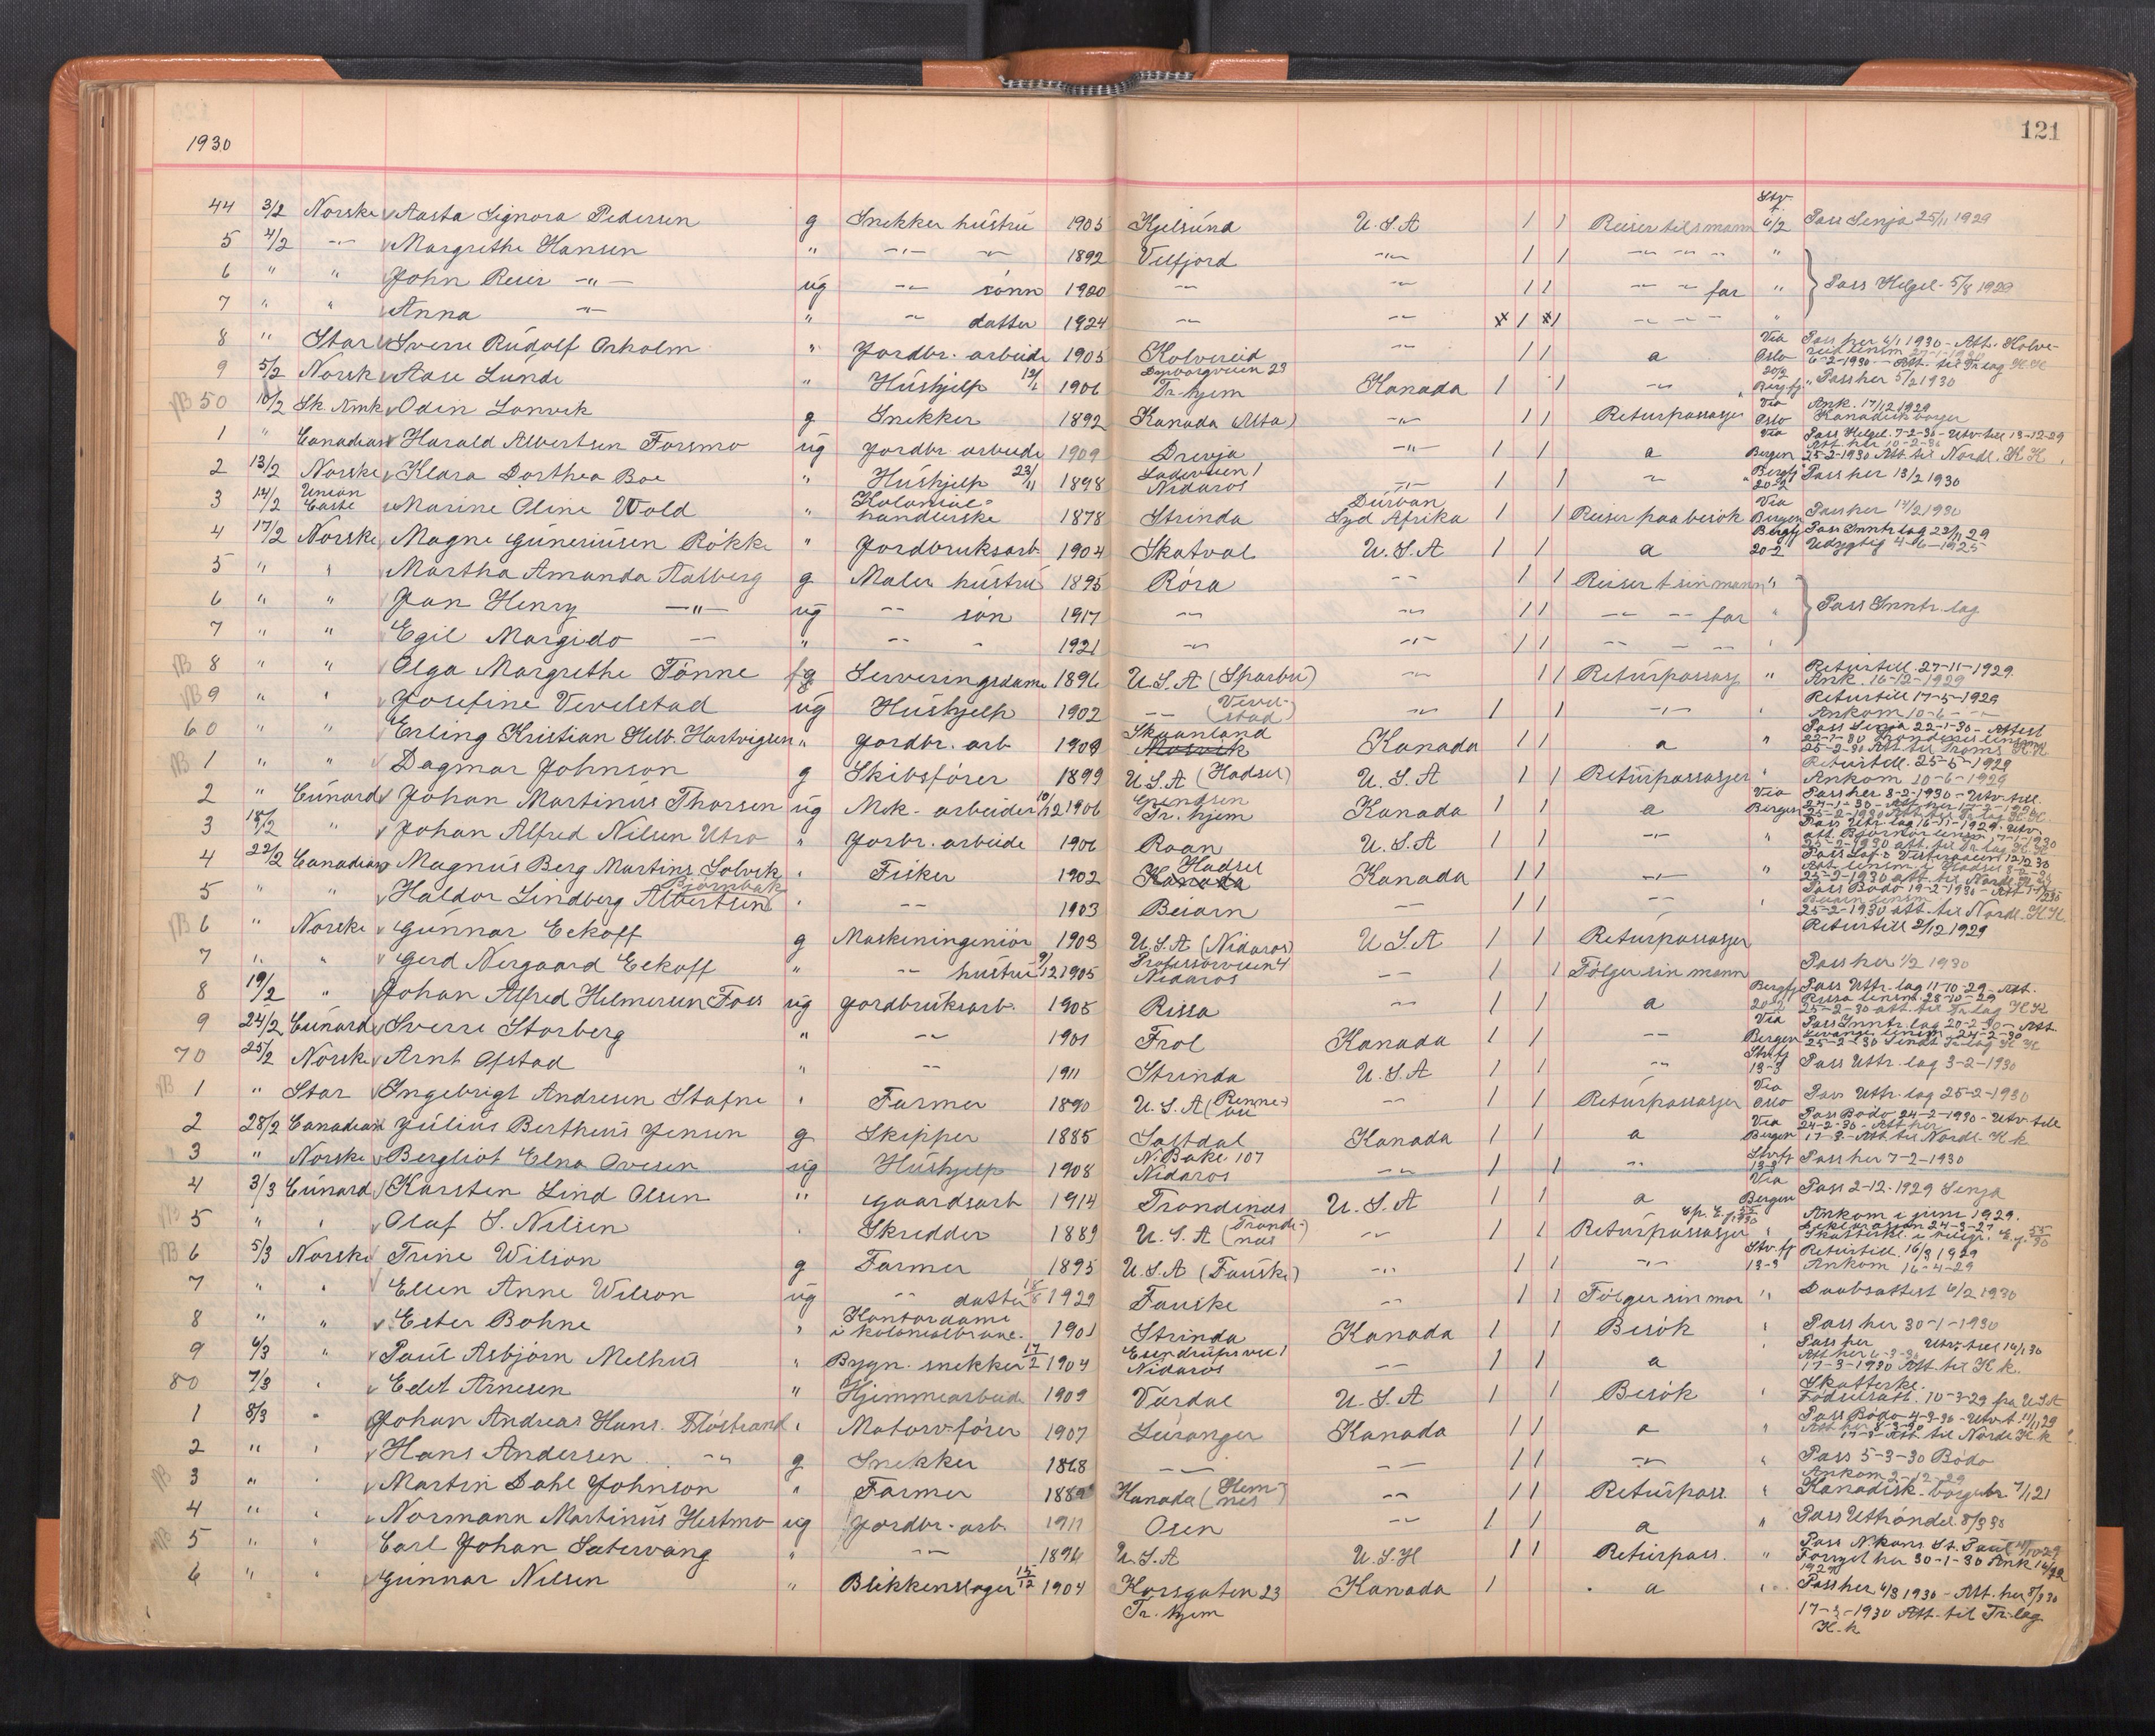 121
1930
44 3/2 Norske Aasta Signora Pedersen g Snekker hustru 1905 Kjelsund U.S.A 1 1 Reiser til s mann Stv. f. 6/2 Pass Senja 25/11 1929
5 4/2 -"- Margrethe Hansen " -"- -"- 1892 Velfjord -"- 1 1 -"- -"- " "
6 " " John Reier -"- ug -"- sönn 1920 -"- -"- 1 1 -"- -"- far " Pass Helgel. 5/8 1929
7 " " Anna -"- " -"- datter 1924 -"- -"- x 1 x 1 -"- -"- "
8 " Star Sverre Rudolf Orholm " Jordbr. arbeide 1905 Kolvereid -"- 1 1 a Via Oslo Pass her 6/1 1930 - Att. Kolvereid 6-2-1930 - Att. til Tr.lag KK
9 5/2 Norsk Aase Lunde " Hushjelp 12/1 1906 Dyborgveien 23 Tr.hjem Kanada 1 1 -"- 20/2 Berg.fj. Pass her 5/2 1930
NB 50 10/2 Sk. Amk Odin Lonvik g Snekker 1892 Kanada (Alta) -"- 1 1 Returpassasjer Via Oslo Ank. 17/12 1929 Kanadisk borger
1 " Canadian Harald Albertsen Forsmo ug Jordbr arbeide 1909 Drevja -"- 1 1 a Via Bergen Pass Helgel. 7-2-30 - Utv till 13-12-29 Att. her 10-2-30 25-2-1930 Att. til Nordl. K K
2 13/2 Norske Klara Dorthea Boe " Hushjelp 23/11 1898 Ladeveien 1 Nidaros -"- 1 1 -"- Bergfj 20-2 Pass her 13/2 1930
3 14/2 Union Castle Marine Oline Wold " Kolonialhandlerske 1878 Strinda Durban Syd Afrika 1 1 Reiser paa besök Via Bergen Pass her 14/2 1930
4 17/2 Norske Magne Guneriusen Rökke " Jordbruksarb. 1904 Skatval U.S.A 1 1 a Bergfj 20-2 Pass Inntr lag 22/11 29 Udygtig 4-6-1925
5 " " Martha Amanda Aalberg g Maler hustru 1895 Röra -"- 1 1 Reiser t sin mann "
6 " " Jan Henry -"- ug -"- sön 1917 -"- -"- 1 1 -"- -"- far " Pass Inntr. lag
7 " " Egil Margido -"- " -"- - 1921 -"- -"- 1 1 -"- -"- -"- "
NB 8 " " Olga Margrethe Tönne fg Serveringsdame 1896 U.S.A (Sparbu) -"- 1 1 Returpassasj " Returtill. 27-11-1929 Ank. 16-12-1929
NB 9 " " Josefine Vevelstad ug Hushjelp 1902 -"- (Vevelstad) -"- 1 1 -"- " Returtill 17-5-1929 Ankom 10-6- -"-
60 " " Erling Kristian Helb. Hartvigsen " Jordbr. arb 1909 Skaanland Kanada 1 1 a " Pass Senja 22-1-30 - Attest 25-2-30 Att til Troms KK
NB 1 " " Dagmar Johnson g Skibsförer 1899 U.S.A (Hadsel) U.S.A 1 1 Returpassasjer " Returtill. 25-5-1929 Ankom 10-6-1929
2 " Cunard Johan Martinus Thorsen ug Mek. arbeider 10/12 1906 Tr. hjem Kanada 1 1 a Via Bergen Pass her 8-2-1930 - Utv till. 27-1-30
3 18/2 " Johan Alfred Nilsen Utro " Jorbr. arbeide 1906 Roan U.S.A 1 1 -"- " Pass Utr. lag 16-11-1929. Utv.
4 22/2 Canadian Magnus Berg Martins. Solvik " Fisker 1902 Hadsel Kanada Kanada 1 1 -"- " 25-2-1930 att. til Nordl. KK
5 " " Haldor Lindberg Albertsen Bjørnbak " -"- 1903 Beiarn -"- 1 1 -"- " Pass Bodö 19-2-1930 25-2-1930 att. til Nordl. KK
NB 6 " Norske Gunnar Eckoff g Maskiningeniör 1903 U.S.A (Nidaros) U S A 1 1 Returpassasjer Returtill 2/12 1929
7 " " Gerd Nergaard Eckoff " -"- hustru 9/12 1905 Professorveien 4 Nidaros -"- 1 1 Fölger sin mann Pass her 1/2 1930
8 19/2 " Johan Alfred Helmersen Foss ug Jordbruksarb. 1905 Rissa -"- 1 1 a Bergfj 20-2 Pass Uttr. lag 11-10-29 - Att. Rissa lensm. 28-10-29 25-2-30 att. til Tr lag KK
9 24/2 Cunard Sverre Storberg " -"- 1901 Frol Kanada 1 1 -"- Via Bergen Pass Inntr. lag 20-2-30 - Att. Levanger lensm. 24-2-30 25-2-30 Sendt Tr-lag KK
70 25/2 Norsk Arnt Ofstad " -"- 1911 Strinda U.S.A 1 1 -"- Stvfj 13-3 Pass Uttr. lag 3-2-1930
NB 1 " Star Ingebrigt Andresen Stafne " Farmer 1890 U.S.A (Rennebu) -"- 1 1 Returpassasjer Via Oslo Pass Uttr. lag 25-2-1930
2 28/2 Canadian Julius Bertheus Jensen g Skipper 1885 Saltdal Kanada 1 1 a Via Bergen Pass Bodö 24-2-1930 - Utv till 24-2-30 - Att her 17-3 - Att til Nordl. K k
3 " Norske Bergliot Elna Ovesen ug Hushjelp 1908 N. Bakl. 107 Nidaros -"- 1 1 -"- Stvfj 13-3 Pass her 7-2-1930
4 3/3 Cunard Karsten Lind Olsen " Gaardsarb 1914 Trondenes U.S.A 1 1 a Via Bergen Pass 2-12-1929 Senja
NB 5 " " Olaf S. Nilsen " Skredder 1889 U.S.A (Trondenes) -"- 1 1 Returpassasjer " Ankom i juni 1929. Deklarasjon 24-3-27
NB 6 5/3 Norske Trine Wilson g Farmer 1895 U.S.A (Fauske) -"- 1 1 -"- Stv.fj 13-3 Returtill. 16/3 1929 Ankom 16-4-29
7 " " Ellen Anne Wilson ug -"- datter 18/8 1929 Fauske -"- 1 1 Fölger sin mor " Daabsattest 6/2 1930
8 " " Ester Bohne " Kontordame i kolonialbranc. 1901 Strinda Kanada 1 1 Besök " Pass her 30-1-1930
9 6/3 " Paul Asbjörn Melhus " Bygn. snekker 17/2 1904 Nidaros -"- 1 1 a " Pass her Utv. till 14/1 30 Att her 6-3-30 17-3-1930 Att. til K k.
80 7/3 " Edit Arnesen " Hjemmearbeide 1909 Verdal U.S.A 1 1 Besök " Skatterkl. Födselsatt. 10-3-29 fra USA
1 8/3 " Johan Andreas Hans. Flöstrand " Motorv-förer 1907 Leiranger Kanada 1 1 a " Pass Bodö 4-3-30 - Utv t. 11/1 29 17-3 - Att til Nordl K k
2 " " Hans Andersen -"- g Snekker 1868 -"- -"- 1 1 -"- " Pass 5-3-30 Bodö
NB 3 " " Martin Dahl Johnson " Farmer 1882 Kanada (Hemnes) -"- 1 1 Returpass. " Ankom 2-12-29 Kanadisk borgerbr. 7/1 21
4 " " Normann Martinus Hestmo ug Jordbr. arb. 1911 Osen -"- 1 1 a " Pass Uttröndel. 8/3 30
NB 5 " " Carl Johan Satervang " -"- 1896 U.S.A U.S.A 1 1 Returpass. " Pass N.kons St. Paul Fornyet her 30-1-30 Ank 1929
6 " " Gunnar Nilsen " Blikkenslager 15/12 1904 Korsgaten 23 Tr. hjem Kanada 1 a " Pass her 6/3 1930 - Att. her 8/3 30
17-3-1930 Att. til Tr.lag
K. k